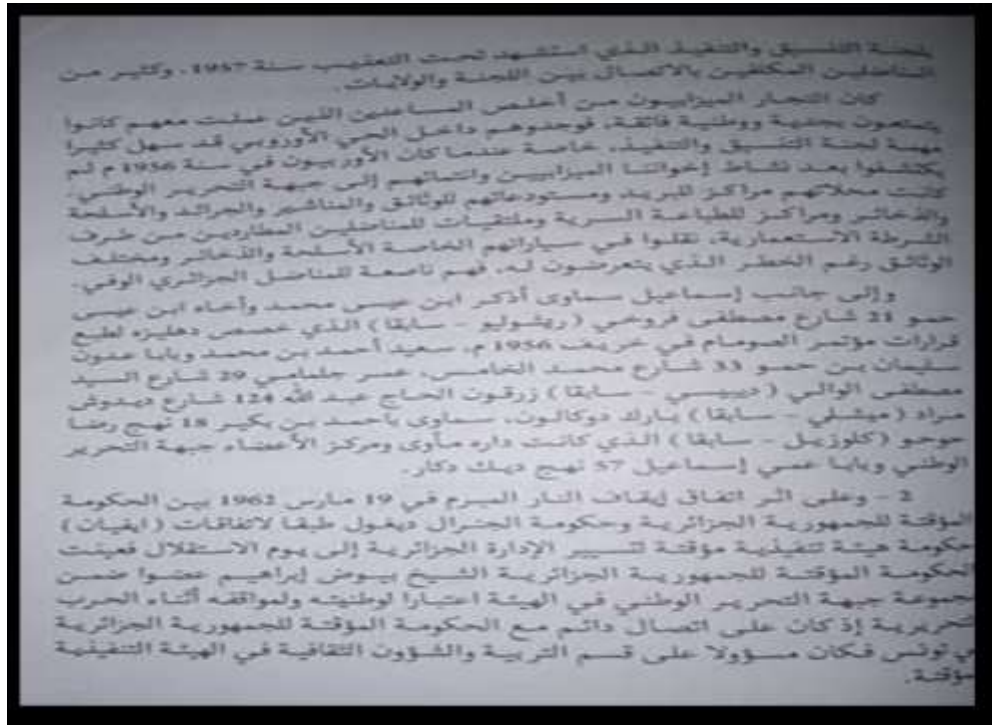 بلجنة التنسيق والتنفيذ الذي استشهد تحت التعذيب سنة 1957، وكثير من
المناضلين المكلفين بالاتصال بين اللجنة والولايات.
كان التجار الميزابيون من أخلص المساعدين الذين عملت معهم كانوا
يتمتعون بجدية ووطنية فائقة، فوجدوهم داخل الحي الأوروبي قد سهل كثيرا
مهمة لجنة التنسيق والتنفيذ، خاصة عندما كان الأوربيون في سنة 1956 م لم
يكتشفوا بعد نشاط إخواننا الميزابيين وانتمائهم إلى جبهة التحرير الوطني.
كانت محلاتهم مراكز للبريد ومستودعاتهم للوثائق والمناشير والجرائد والأسلحة
والذخائر ومراكز للطباعة السرية وملتقيات للمناضلين المطاردين من طرف
الشرطة الاستعمارية، نقلوا في سياراتهم الخاصة الأسلحة والذخائر ومختلف
الوثائق رغم الخطر الذي يتعرضون له، فهم ناصعة للمناضل الجزائري الوفي.
وإلى جانب إسماعيل سماوي أذكر ابن عيسى محمد وأخاه ابن عيسى
حمو 21 شارع مصطفى فروخي (ريشوليو – سابقا) الذي خصص دهليزه لطبع
قرارات مؤتمر الصومام في خريف 1956 م، سعيد أحمد بن محمد وبابا عدون
سليمان بن حمو 33 شارع محمد الخامس، عمر جلمامي 29 شارع السيد
مصطفى الوالي (ديبيسي – سابقا) زرقون الحاج عبد الله 124 شارع ديدوش
مراد (ميشلي – سابقا) بارك دوكالون، سماوي باحمد بن بكير 18 نهج رضا
حوحو (كلوزيل – سابقا) الذي كانت داره مأوى ومركز الأعضاء جبهة التحرير
الوطني وبابا عمي إسماعيل 57 نهج ديك دكار.
2 – وعلى اثر اتفاق إيقاف النار المبرم في 19 مارس 1962 بين الحكومة
المؤقتة للجمهورية الجزائرية وحكومة الجنرال ديغول طبقا لاتفاقات (ايفيان)
حكومة هيئة تنفيذية مؤقتة لتسيير الإدارة الجزائرية إلى يوم الاستقلال فعينت
الحكومة المؤقتة للجمهورية الجزائرية الشيخ بيوض إبراهيم عضوا ضمن
جموعة جبهة التحرير الوطني في الهيئة اعتبارا لوطنيته ولمواقفه أثناء الحرب
لتحريرية إذ كان على اتصال دائم مع الحكومة المؤقتة للجمهورية الجزائرية
ي تونس فكان مسؤولا على قسم التربية والشؤون الثقافية في الهيئة التنفيذية
مؤقتة.